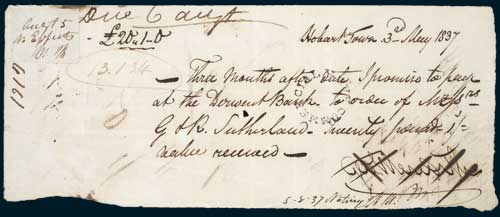 Due 6 Augt
Augt 5
No Effects
£20..1-0
Hobart Town 3rd May 1837
13.134
- Three Months after date, I promise to pay
at the Derwent Bank to order of Messrs
G & R. Sutherland - twenty pounds 1/-
value received -
5-8-37 Noting